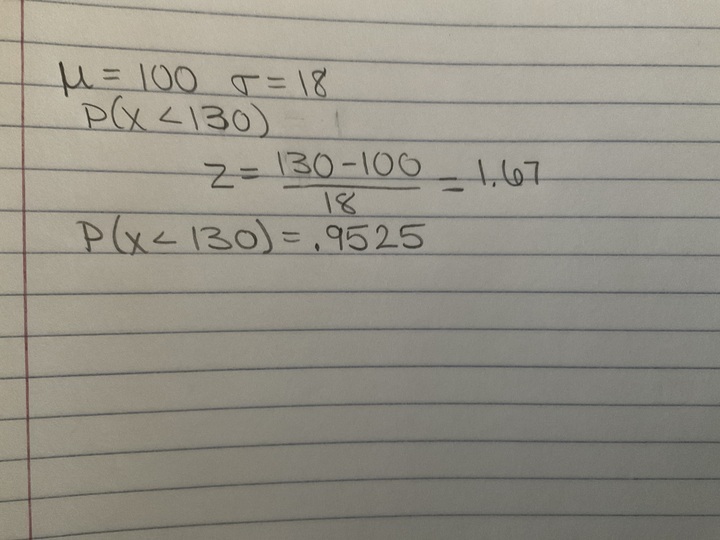 μ = 100 σ = 18
P(x < 130)
z = 130 - 100 / 18 = 1.67
P(x < 130) = .9525